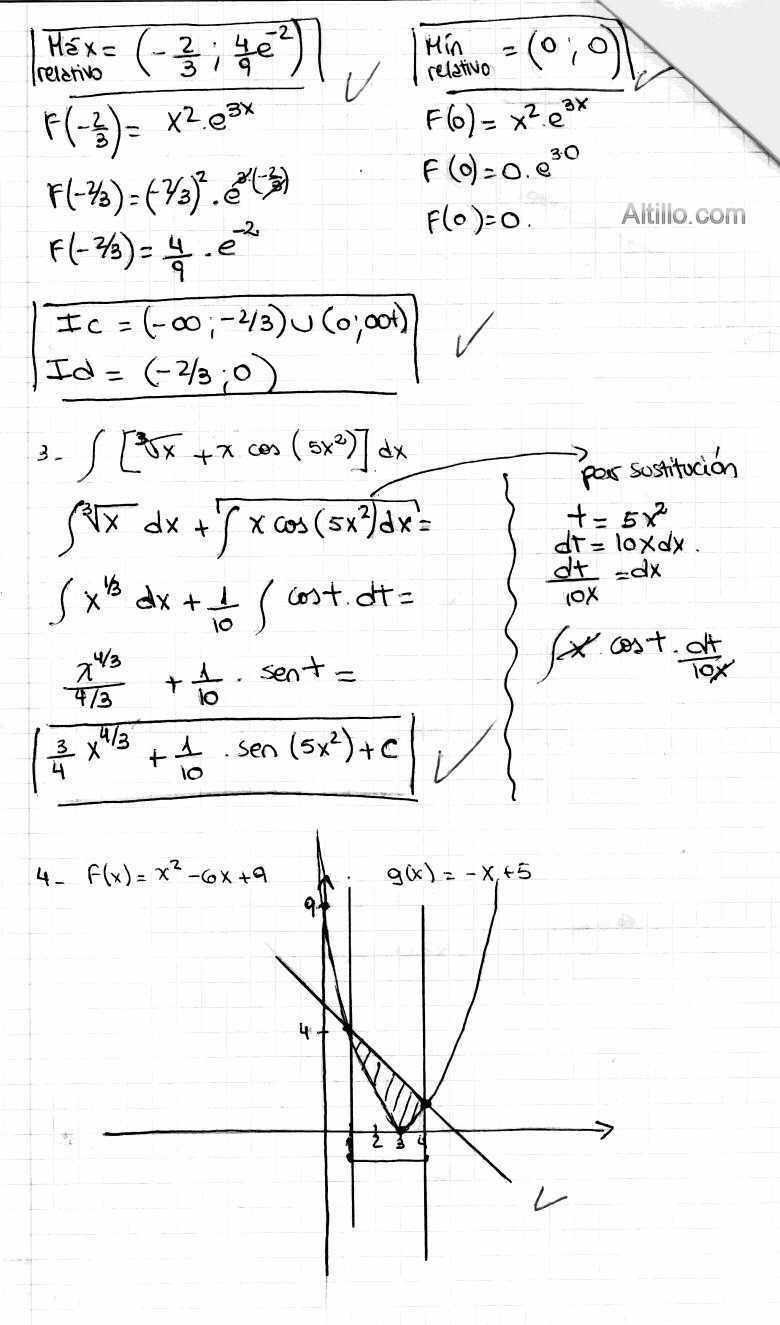 Máx relativo = (-2/3 ; 4/9 e^-2)
F(-2/3) = x². e^3x
F(-2/3) = (-2/3)² . e^3.(-2/3)
F(-2/3) = 4/9 . e^-2
Mín relativo = (0 ; 0)
F(0) = x². e^3x
F(0) = 0. e^3.0
F(0) = 0.
Altillo.com
Ic = (-∞ ; -2/3) ∪ (0 ; ∞+)
Id = (-2/3 ; 0)
3- ∫ [∛x + x cos (5x²)] dx
∫ ∛x dx + ∫ x cos (5x²) dx =
∫ x^1/3 dx + 1/10 ∫ cos t. dt =
x^4/3 / 4/3 + 1/10 . sen t =
3/4 x^4/3 + 1/10 . sen (5x²) + C
por sustitución
t = 5x²
dt = 10x dx.
dt/10x = dx
∫ x. cos t. dt/10x
4- F(x) = x² - 6x + 9
g(x) = -x + 5
9
4
1 2 3 4